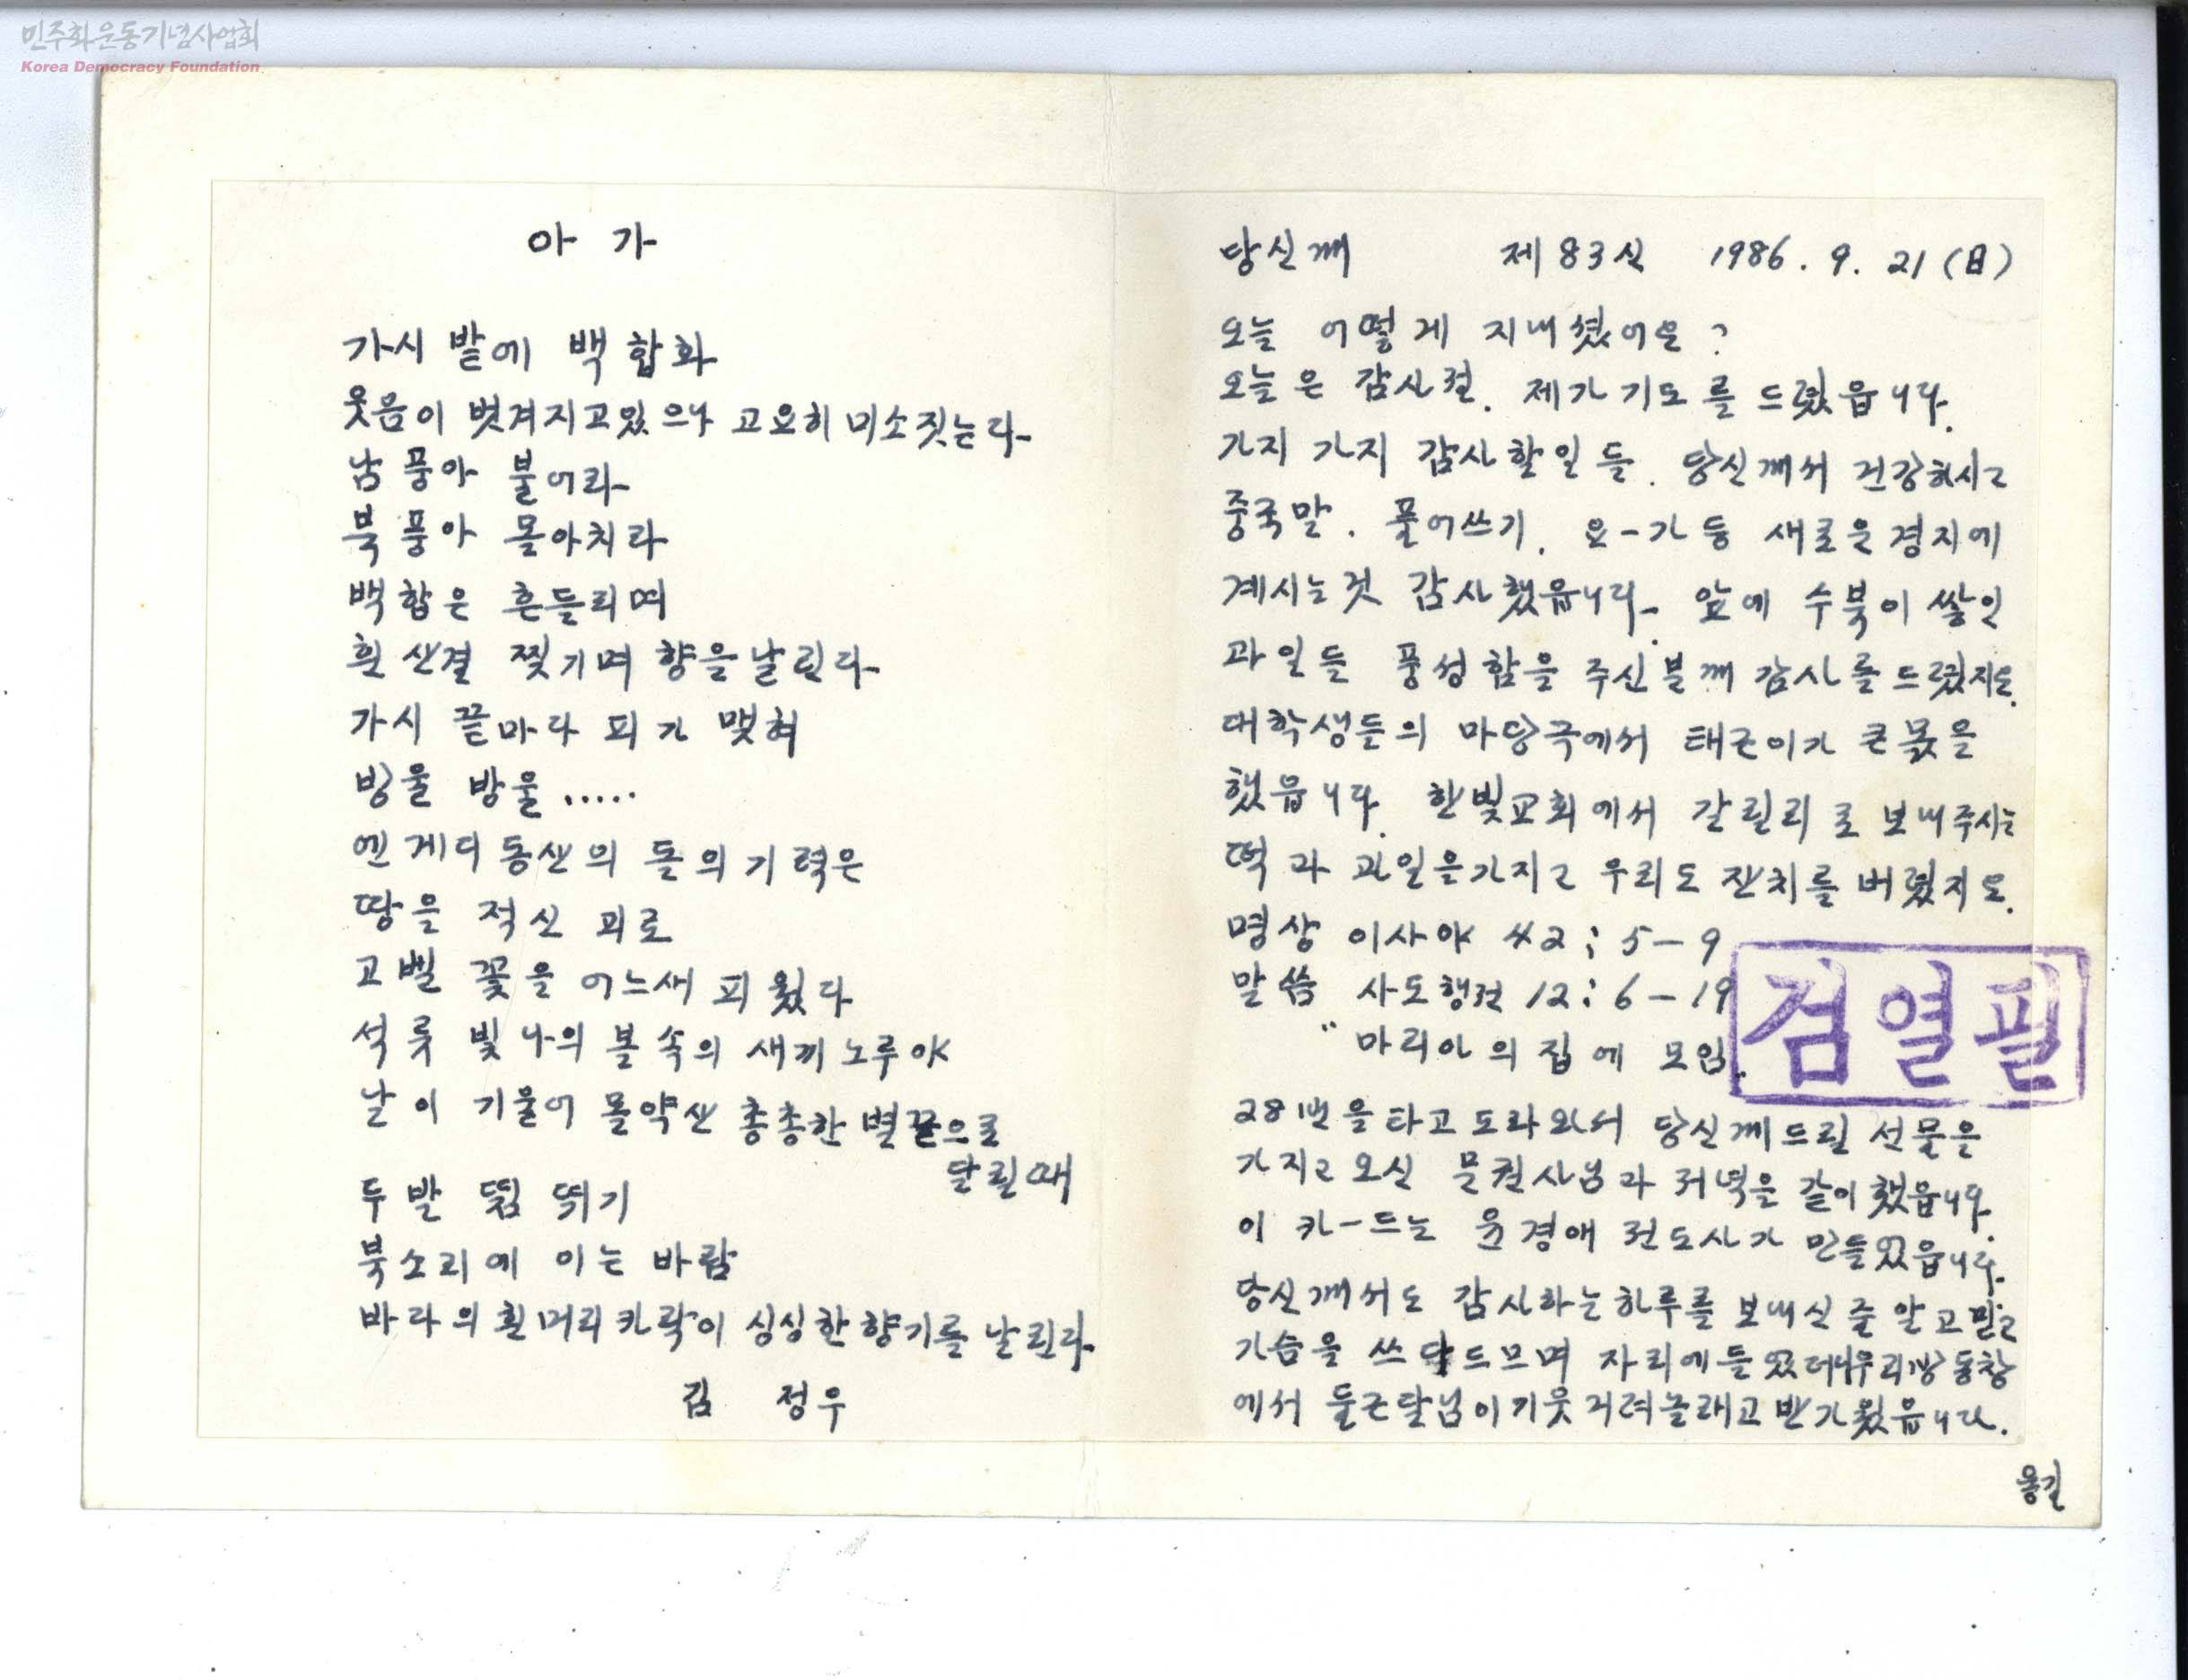 민주화운동기념사업회
Korea Democracy Foundation
아 가
가시 밭에 백합화
웃음이 벗겨지고있으나 고요히 미소짓는다
남풍아 불어라
북풍아 몰아치라
백합은 흔들리며
흰 살결 찢기며 향을 날린다
가시 끝마다 피가 맺혀
방울 방울 .....
엔게디 동산의 돌의 기력은
땅을 적신 피로
고벨 꽃을 어느새 피웠다
석류 빛 나의 볼 속의 새끼 노루야
날이 기울어 몰약산 총총한 별끝으로
달릴때
두 발 뜀 뛰기
북소리에 이는 바람
바다의 흰 머리카락이 싱싱한 향기를 날린다
김 정우
당신께 제83신 1986. 9. 21 (日)
오늘 어떻게 지내셨어요?
오늘은 감사절. 제가 기도를 드렸읍니다.
가지 가지 감사할일들. 당신께서 건강하시고
중국말. 풀어쓰기. 요-가 등 새로운 경지에
계시는것 감사했읍니다. 앞에 수북이 쌓인
과일들 풍성함을 주신분께 감사를 드렸지요.
대학생들의 마당극에서 태근이가 큰 몫을
했읍니다. 한빛교회에서 갈릴리로 보내주시는
떡과 과일을가지고 우리도 잔치를 버렸지요.
명상 이사야 42 : 5 - 9
말씀 사도행전 12 : 6 - 19
" 마리아의 집에 모임.
검열필
28번을 타고 도라와서 당신께드릴 선물을
가지고 오신 문권사님과 저녁을 같이 했읍니다.
이 카-드는 윤경애 전도사가 만들었읍니다.
당신께서도 감사하는하루를 보내신 줄 알고 믿고
가슴을 쓰다드므며 자리에들었더니우리방 동창
에서 둥근달님이기웃거려놀래고 반가웠읍니다.
용길